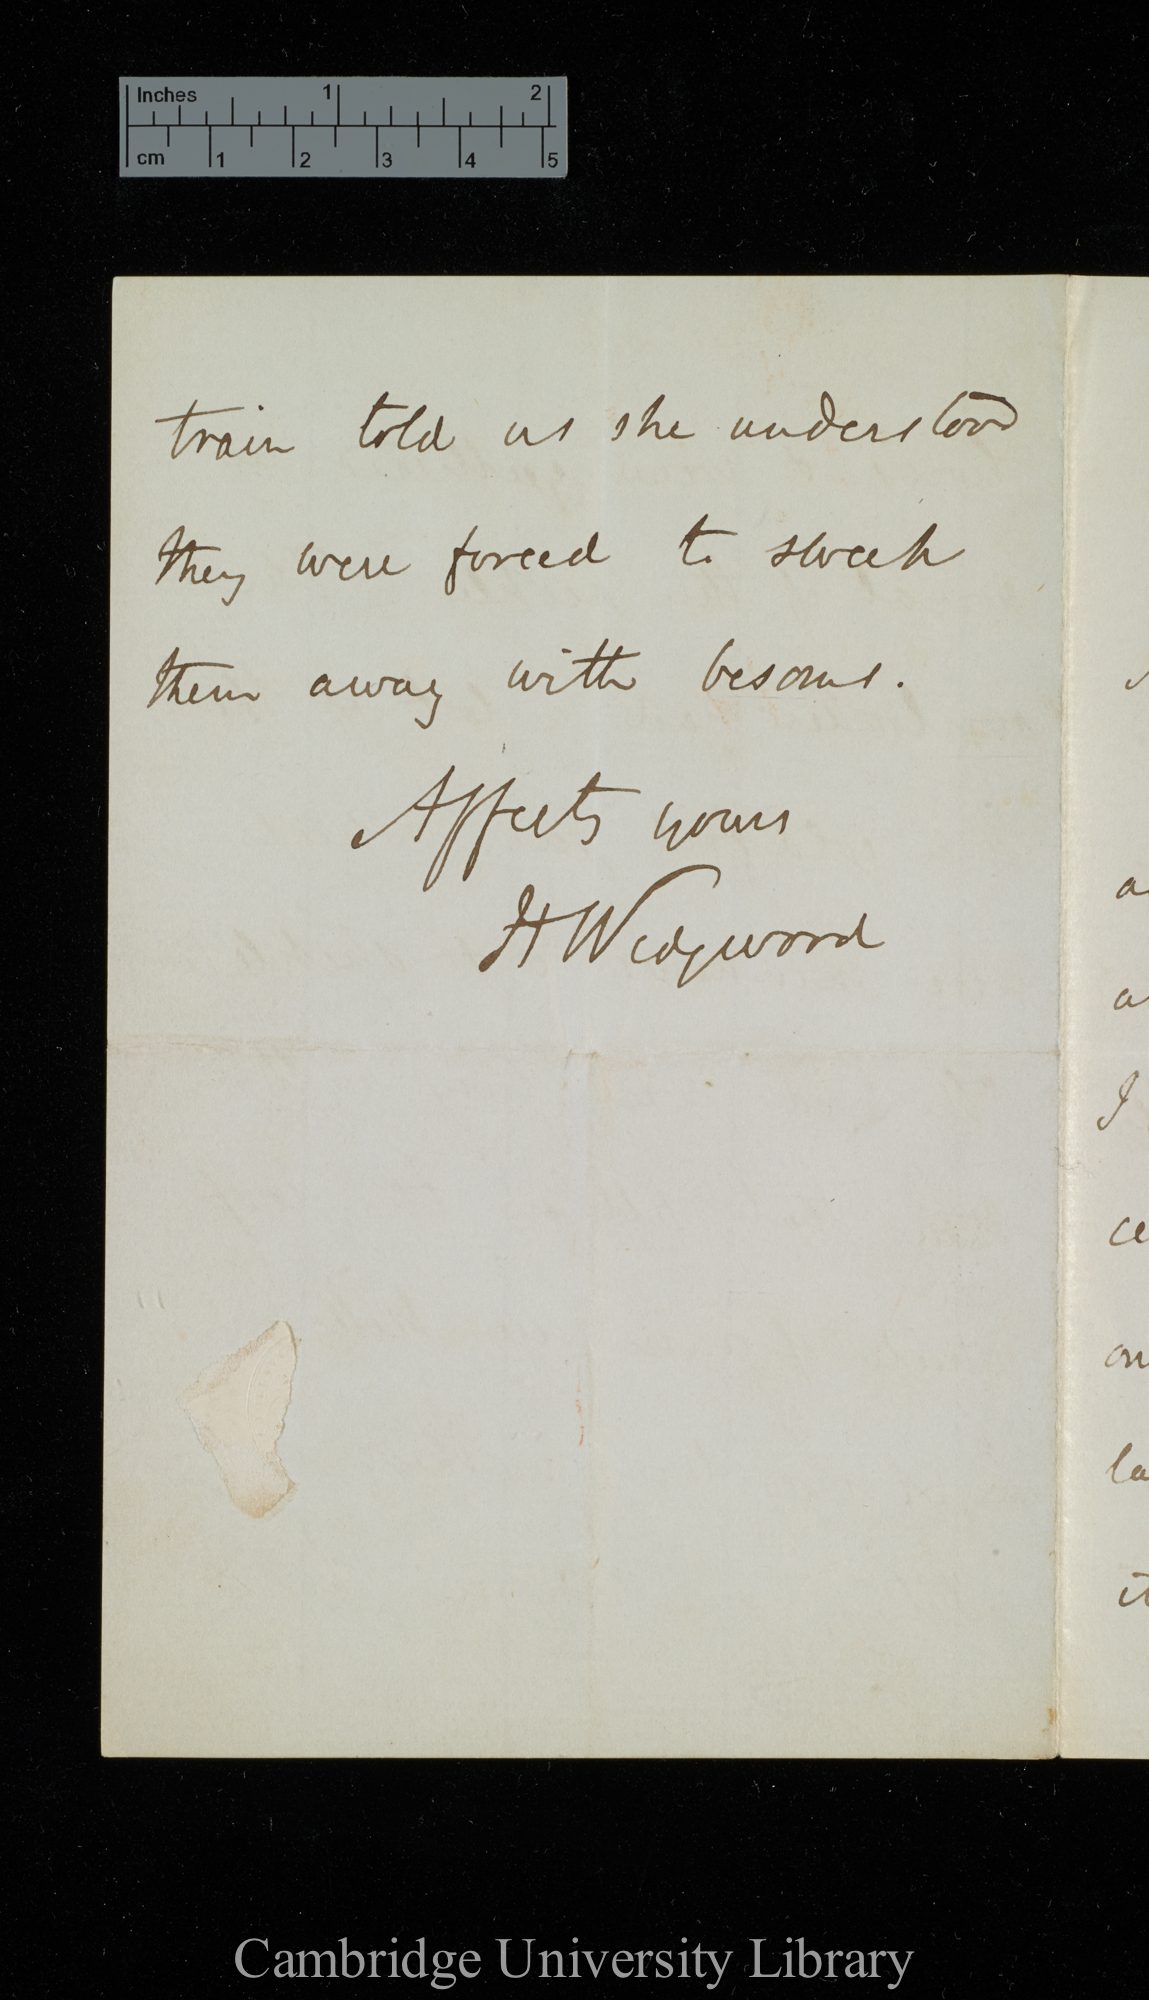 Inches 1 2
cm 1 2 3 4 5
train told us she understood
they were forced to sweep
them away with besoms.
Affectly yours
H Wedgwood
a
a
I
ce
on
la
it
Cambridge University Library